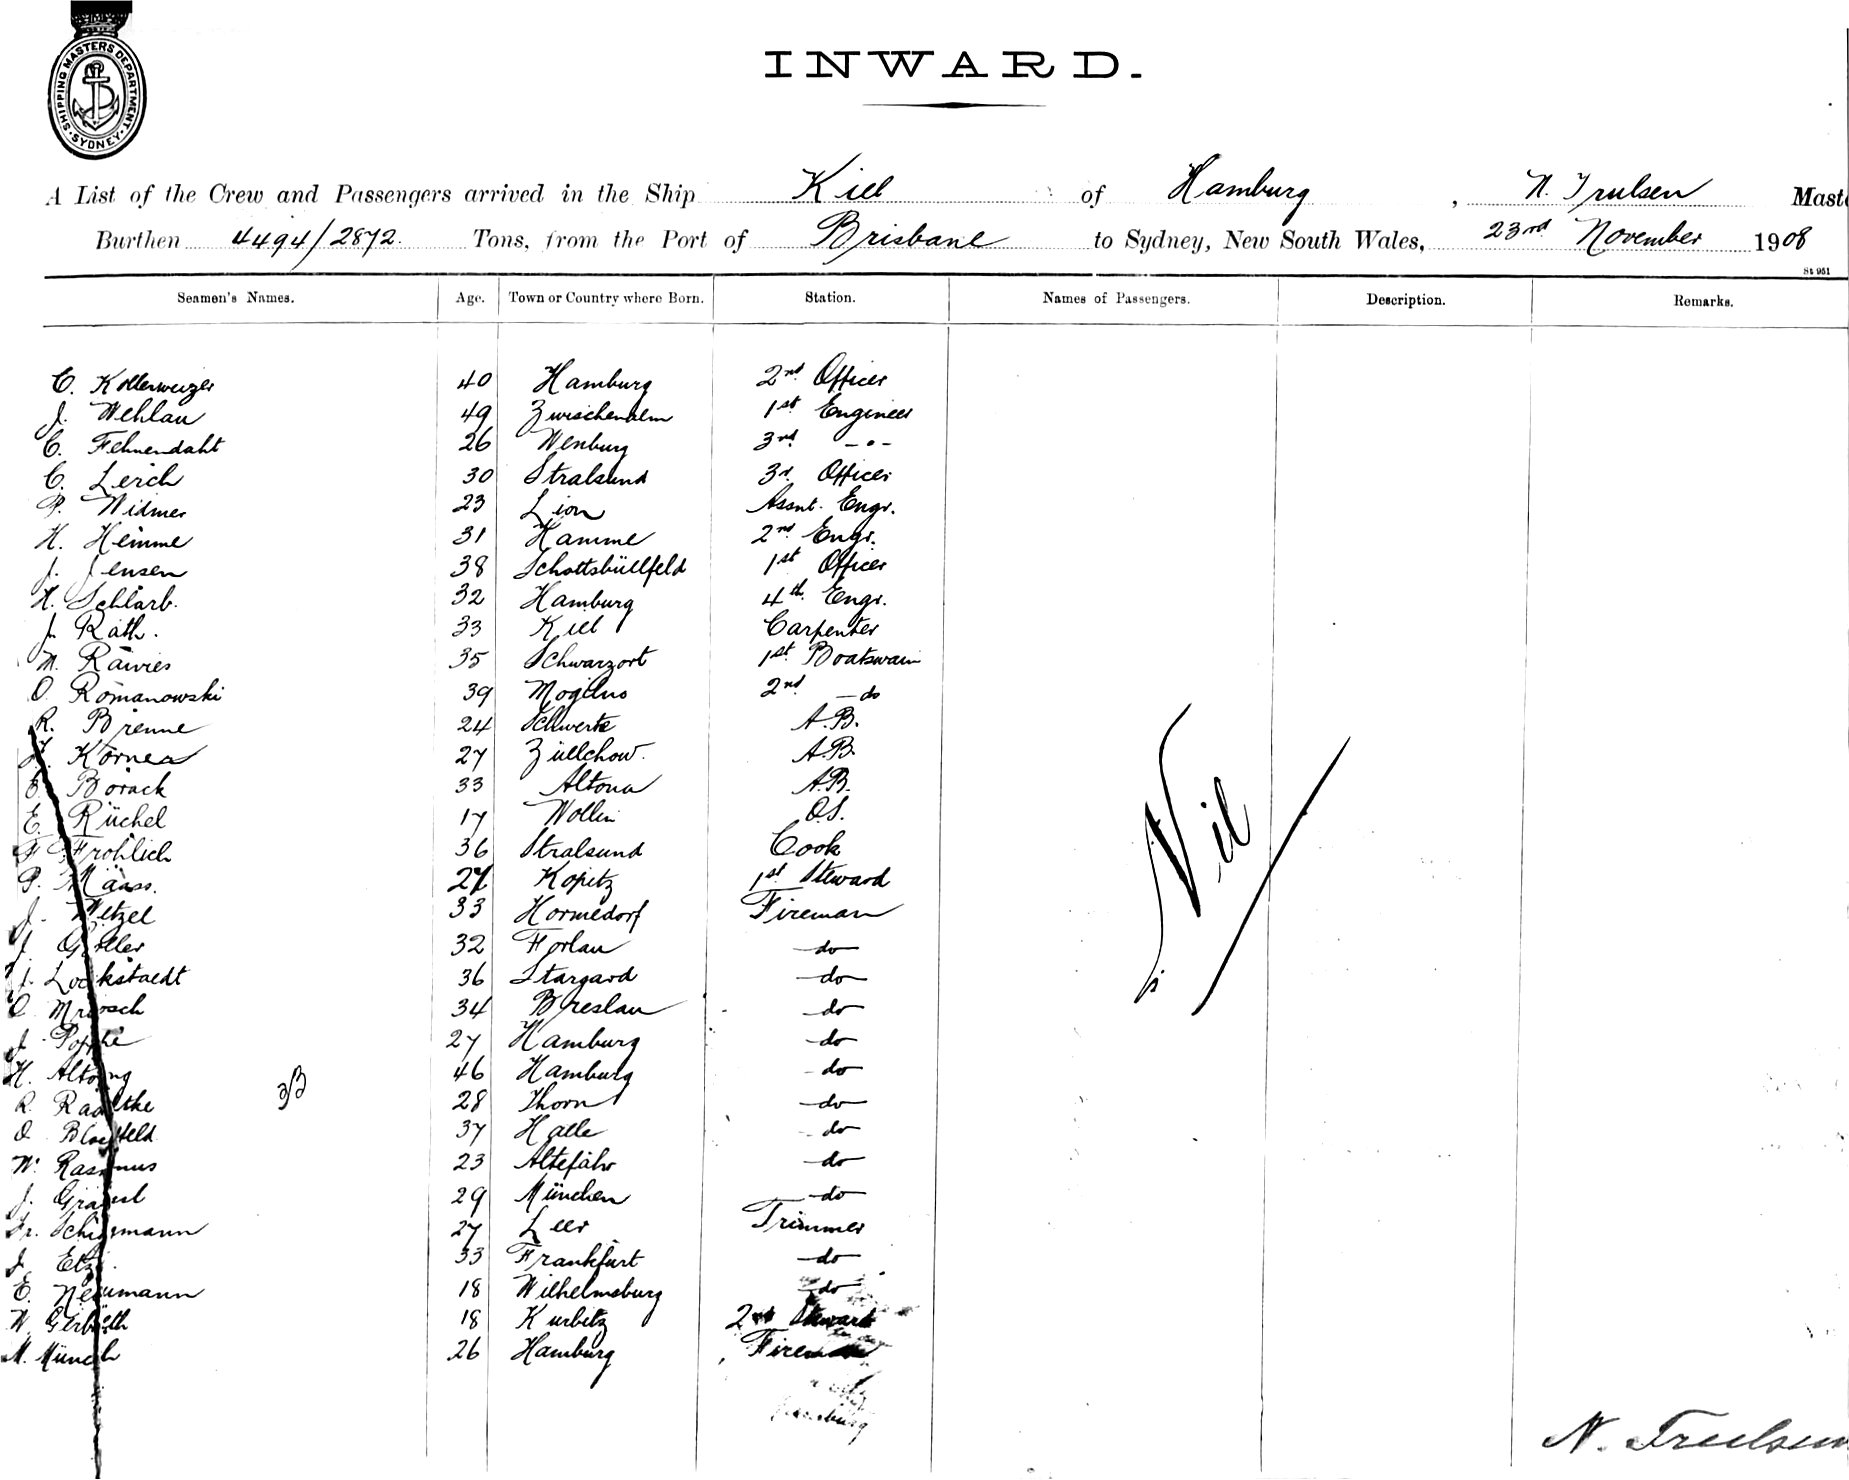 SHIPPING MASTERS DEPARTMENT. SYDNEY
INWARD.
A List of the Crew and Passengers arrived in the Ship Kiel of Hamburg, N. Trulsen Maste
Burthen 4494/2872. Tons, from the Port of Brisbane to Sydney, New South Wales, 23rd November 1908
St 951
Seamen's Names. Age. Town or Country where Born. Station. Names of Passengers. Description. Remarks.
C. Kollerweizer 40 Hamburg 2nd Officer
J. Wehlau 49 Zwischenalm 1st Engineer
C. Fehnendaht 26 Wenburg 3rd -"-
C. Lerich 30 Stralsund 3rd Officer
P. Widmer 23 Lion Assnt. Engr.
H. Hemme 31 Hamme 2nd Engr.
J. Jensen 38 Schottsbüllfeld 1st Officer
H. Schlarb. 32 Hamburg 4th Engr.
J. Rath. 33 Kiel Carpenter
M. Rawies 35 Schwarzort 1st Boatswain
O. Romanowski 39 Mogilno 2nd -do
R. Brenne 24 Schwerte A.B.
Körner 27 Züllchow. A.B.
Borack 33 Altona A.B.
E. Rüchel 17 Wollin O.S.
F. Fröhlich 36 Stralsund Cook
P. Maass. 27 Kopitz 1st Steward
J. Wetzel 33 Hormedorf Fireman
J. Göller 32 Forlau -do-
J. Lockstaedt 36 Stargard -do-
O. 34 Breslau -do-
J. Poppe 27 Hamburg -do-
H. 46 Hamburg -do-
R. Radtke 28 Thorn -do-
O. 37 Halle -do-
W. Rasmus 23 Altefähr -do-
J. 29 München -do-
Fr. Schünemann 27 Leer Trimmer
J. 33 Frankfurt -do-
E. Neumann 18 Wilhelmsburg -do-
W. Gerbeth 18 Kurbitz 2nd Steward
M. Münch 26 Hamburg Fireman
Nil
N. Trulsen